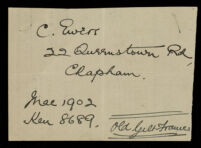 C. Ewers
22 Queenstown Rd,
Clapham.
Mac 1902
Ken 8689.
Old Gilt Frames